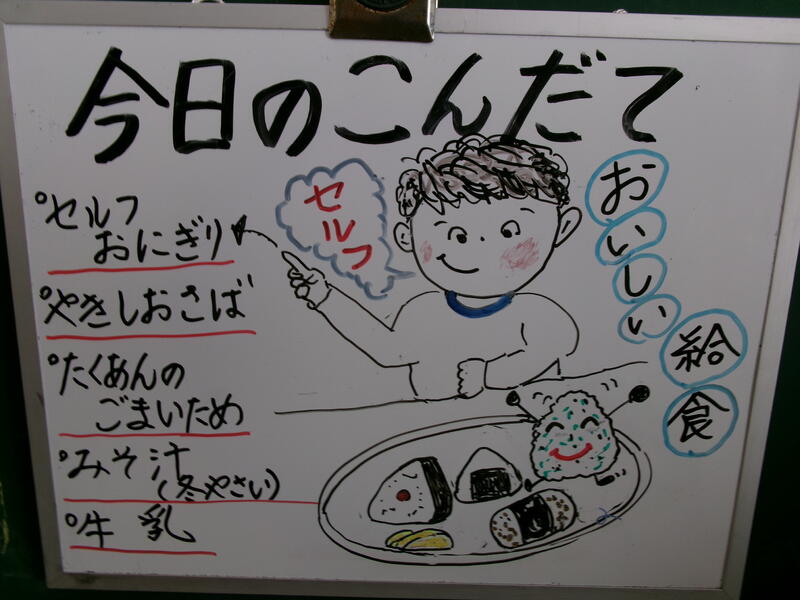 今日のこんだて
セルフ
おにぎり
やきしおさば
たくあんの
ごまいため
みそ汁
(冬やさい)
牛乳
セルフ
おいしい
給食